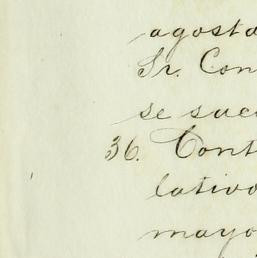 agosto
Sr. Con
se suce
36. Cont
lativo
mayo